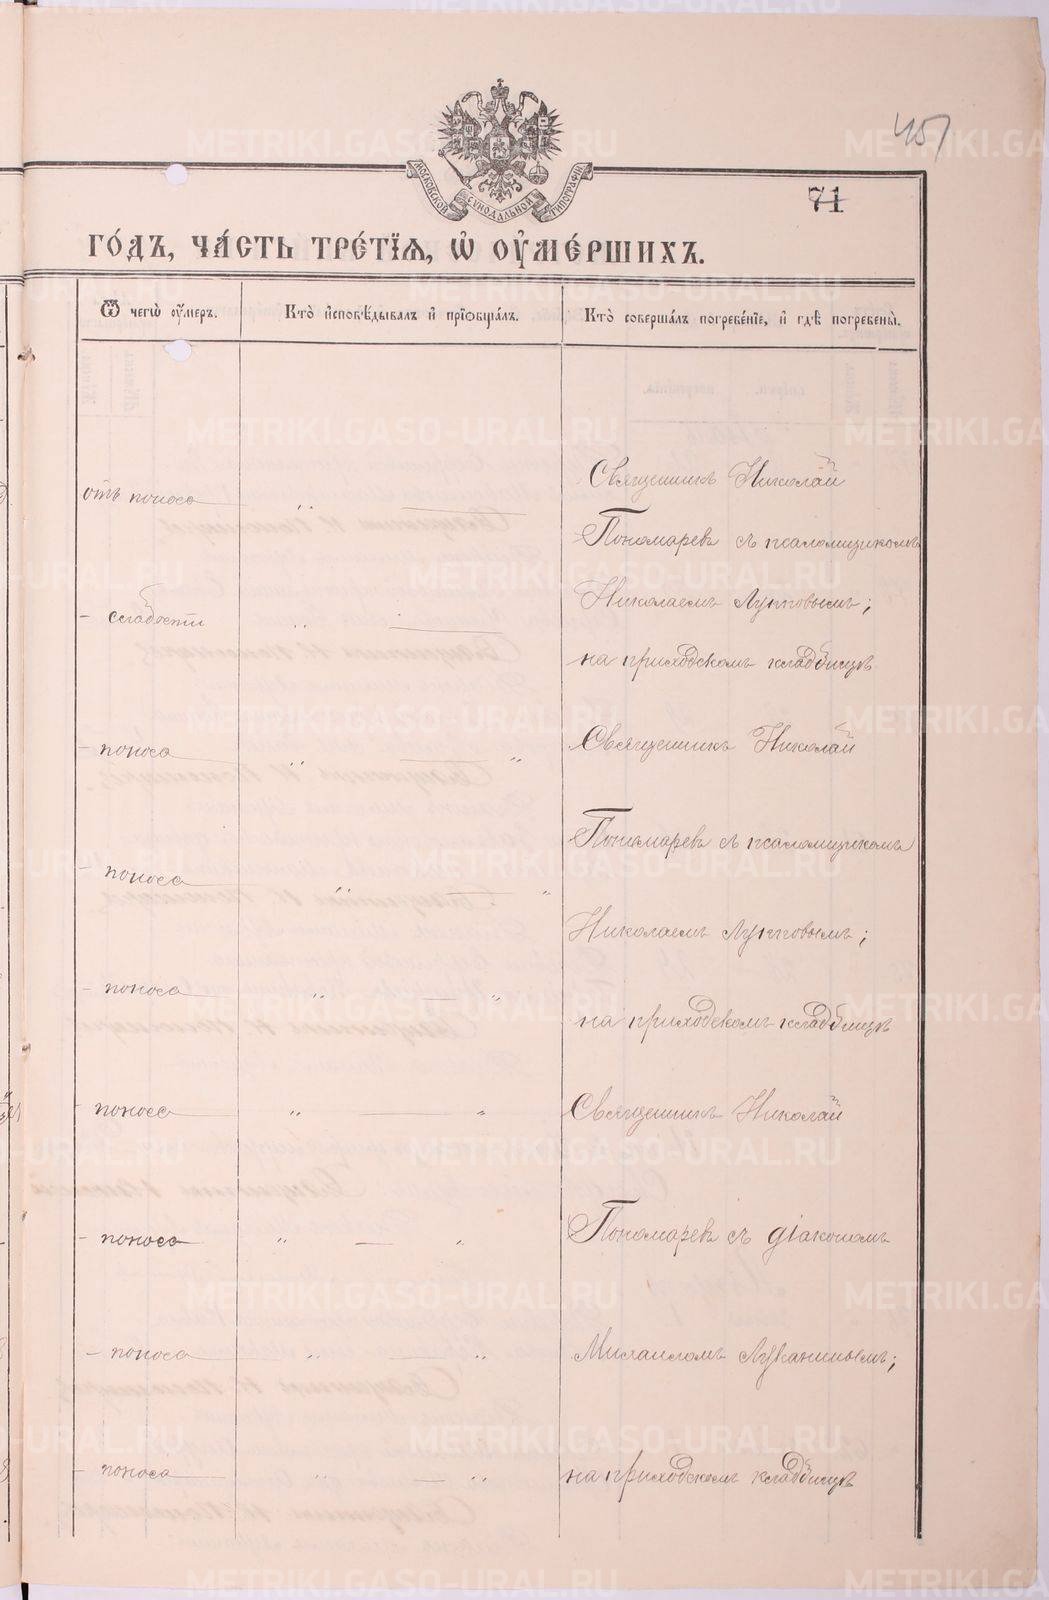 45
71
МОСКОВСКОЙ СѴНОДАЛЬНОЙ ТИПОГРАФІИ
ГО́ДЪ, ЧА́СТЬ ТРЕ́ТІЯ, Ѡ҆ ОУ҆МЕ́РШИХЪ.
Ѿ чегѡ̀ оу҆́меръ.
Кто̀ и҆сповѣ́дывалъ и҆ прїѡбща́лъ.
Кто̀ соверша́лъ погребе́нїе, и҆ гдѣ̀ погребены̀.
Священникъ Николай
отъ поноса „ —
Пономаревъ съ псаломщикомъ
Николаемъ Лупповымъ;
- слабости „ —
на приходскомъ кладбищѣ
Священникъ Николай
- поноса „ — „
Пономаревъ съ псаломщикомъ
- поноса „ — „
Николаемъ Лупповымъ;
- поноса „ — „
на приходскомъ кладбищѣ
Священникъ Николай
- поноса „ — „
Пономаревъ съ діакономъ
- поноса „ — „
Михаиломъ Лукинымъ;
- поноса „ — „
на приходскомъ кладбищѣ
- поноса „ — „
METRIKI.GASO-URAL.RU